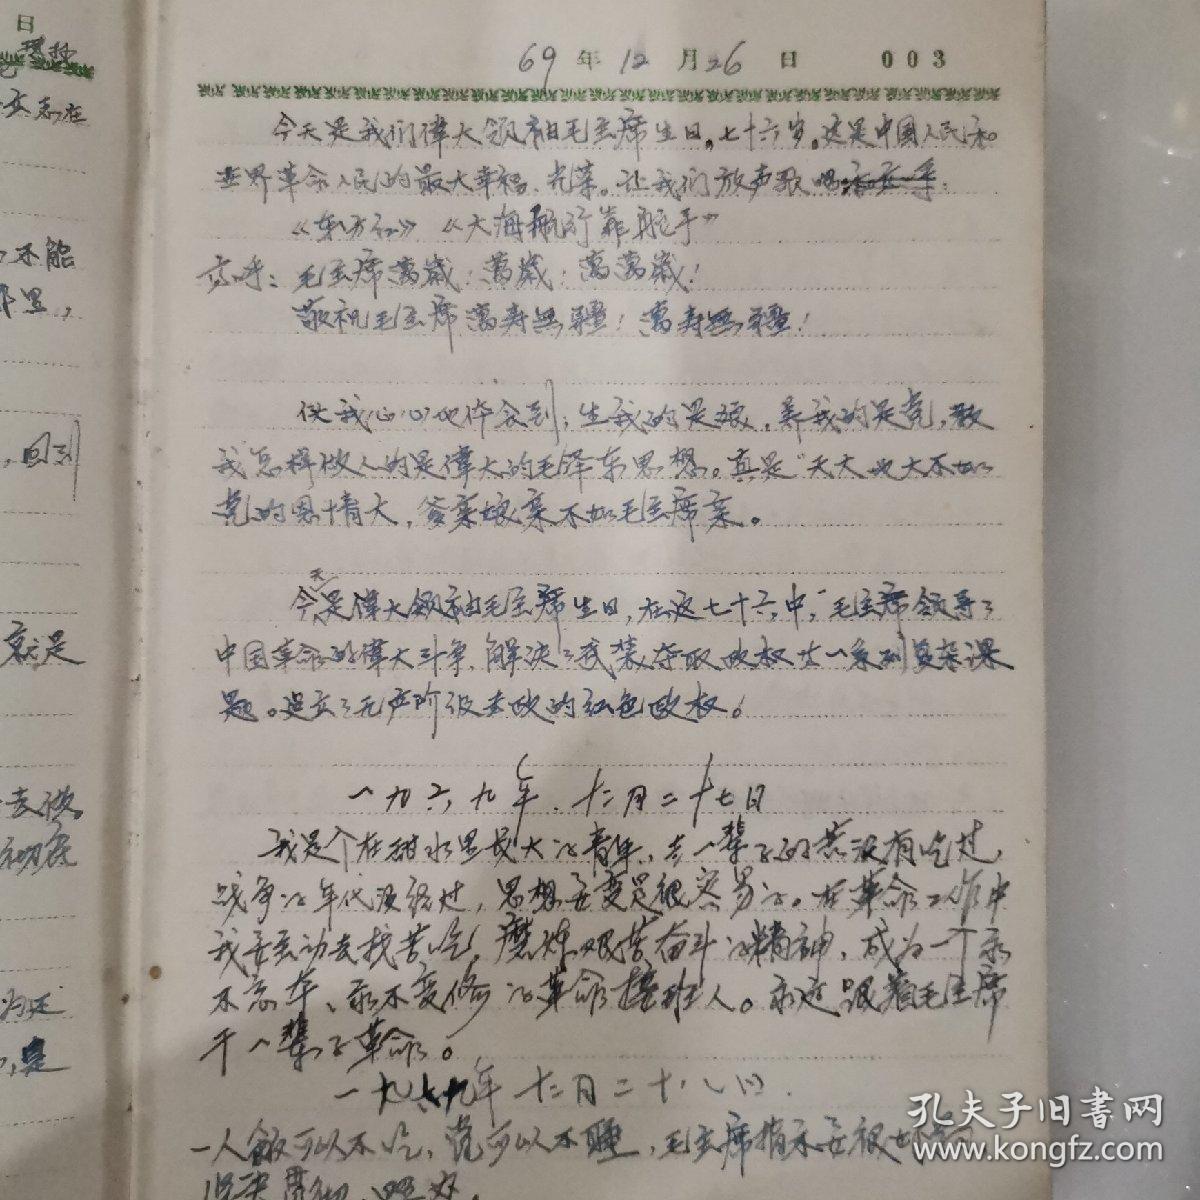 日
69年12月26日 003
今天是我们偉大领袖毛主席生日。七十六岁。这是中国人民和
世界革命人民的最大幸福、光荣。让我们放声歌唱
《东方红》《大海航行靠舵手》
高呼：毛主席萬歲！萬歲！萬萬歲！
敬祝毛主席萬寿無疆！萬寿無疆！
使我心心地体会到：生我的是娘，养我的是党，教
我怎样做人的是偉大的毛泽东思想。真是"天大地大不如
党的恩情大，爹亲娘亲不如毛主席亲。
今天是偉大领袖毛主席生日，在这七十六中，毛主席领导了
中国革命的偉大斗争，解决了武装夺取政权一系列复杂课
题。建立了无产阶级专政的红色政权。
一九六九年.十二月二十七日
我是个在甜水里长大的青年，老一辈子的苦没有吃过，
战争的年代没经过，思想要变是很容易的。在革命工作中
我要主动去找苦吃，磨炼艰苦奋斗的精神，成为一个永
不忘本、永不变修的革命接班人。永远跟着毛主席
干一辈子革命。
一九六九年十二月二十八日.
一人飯可以不吃，觉可以不睡，毛主席指示要
坚决贯彻
不能
里，
回到
就是
去做
为还
孔夫子旧书网
www.kongfz.com